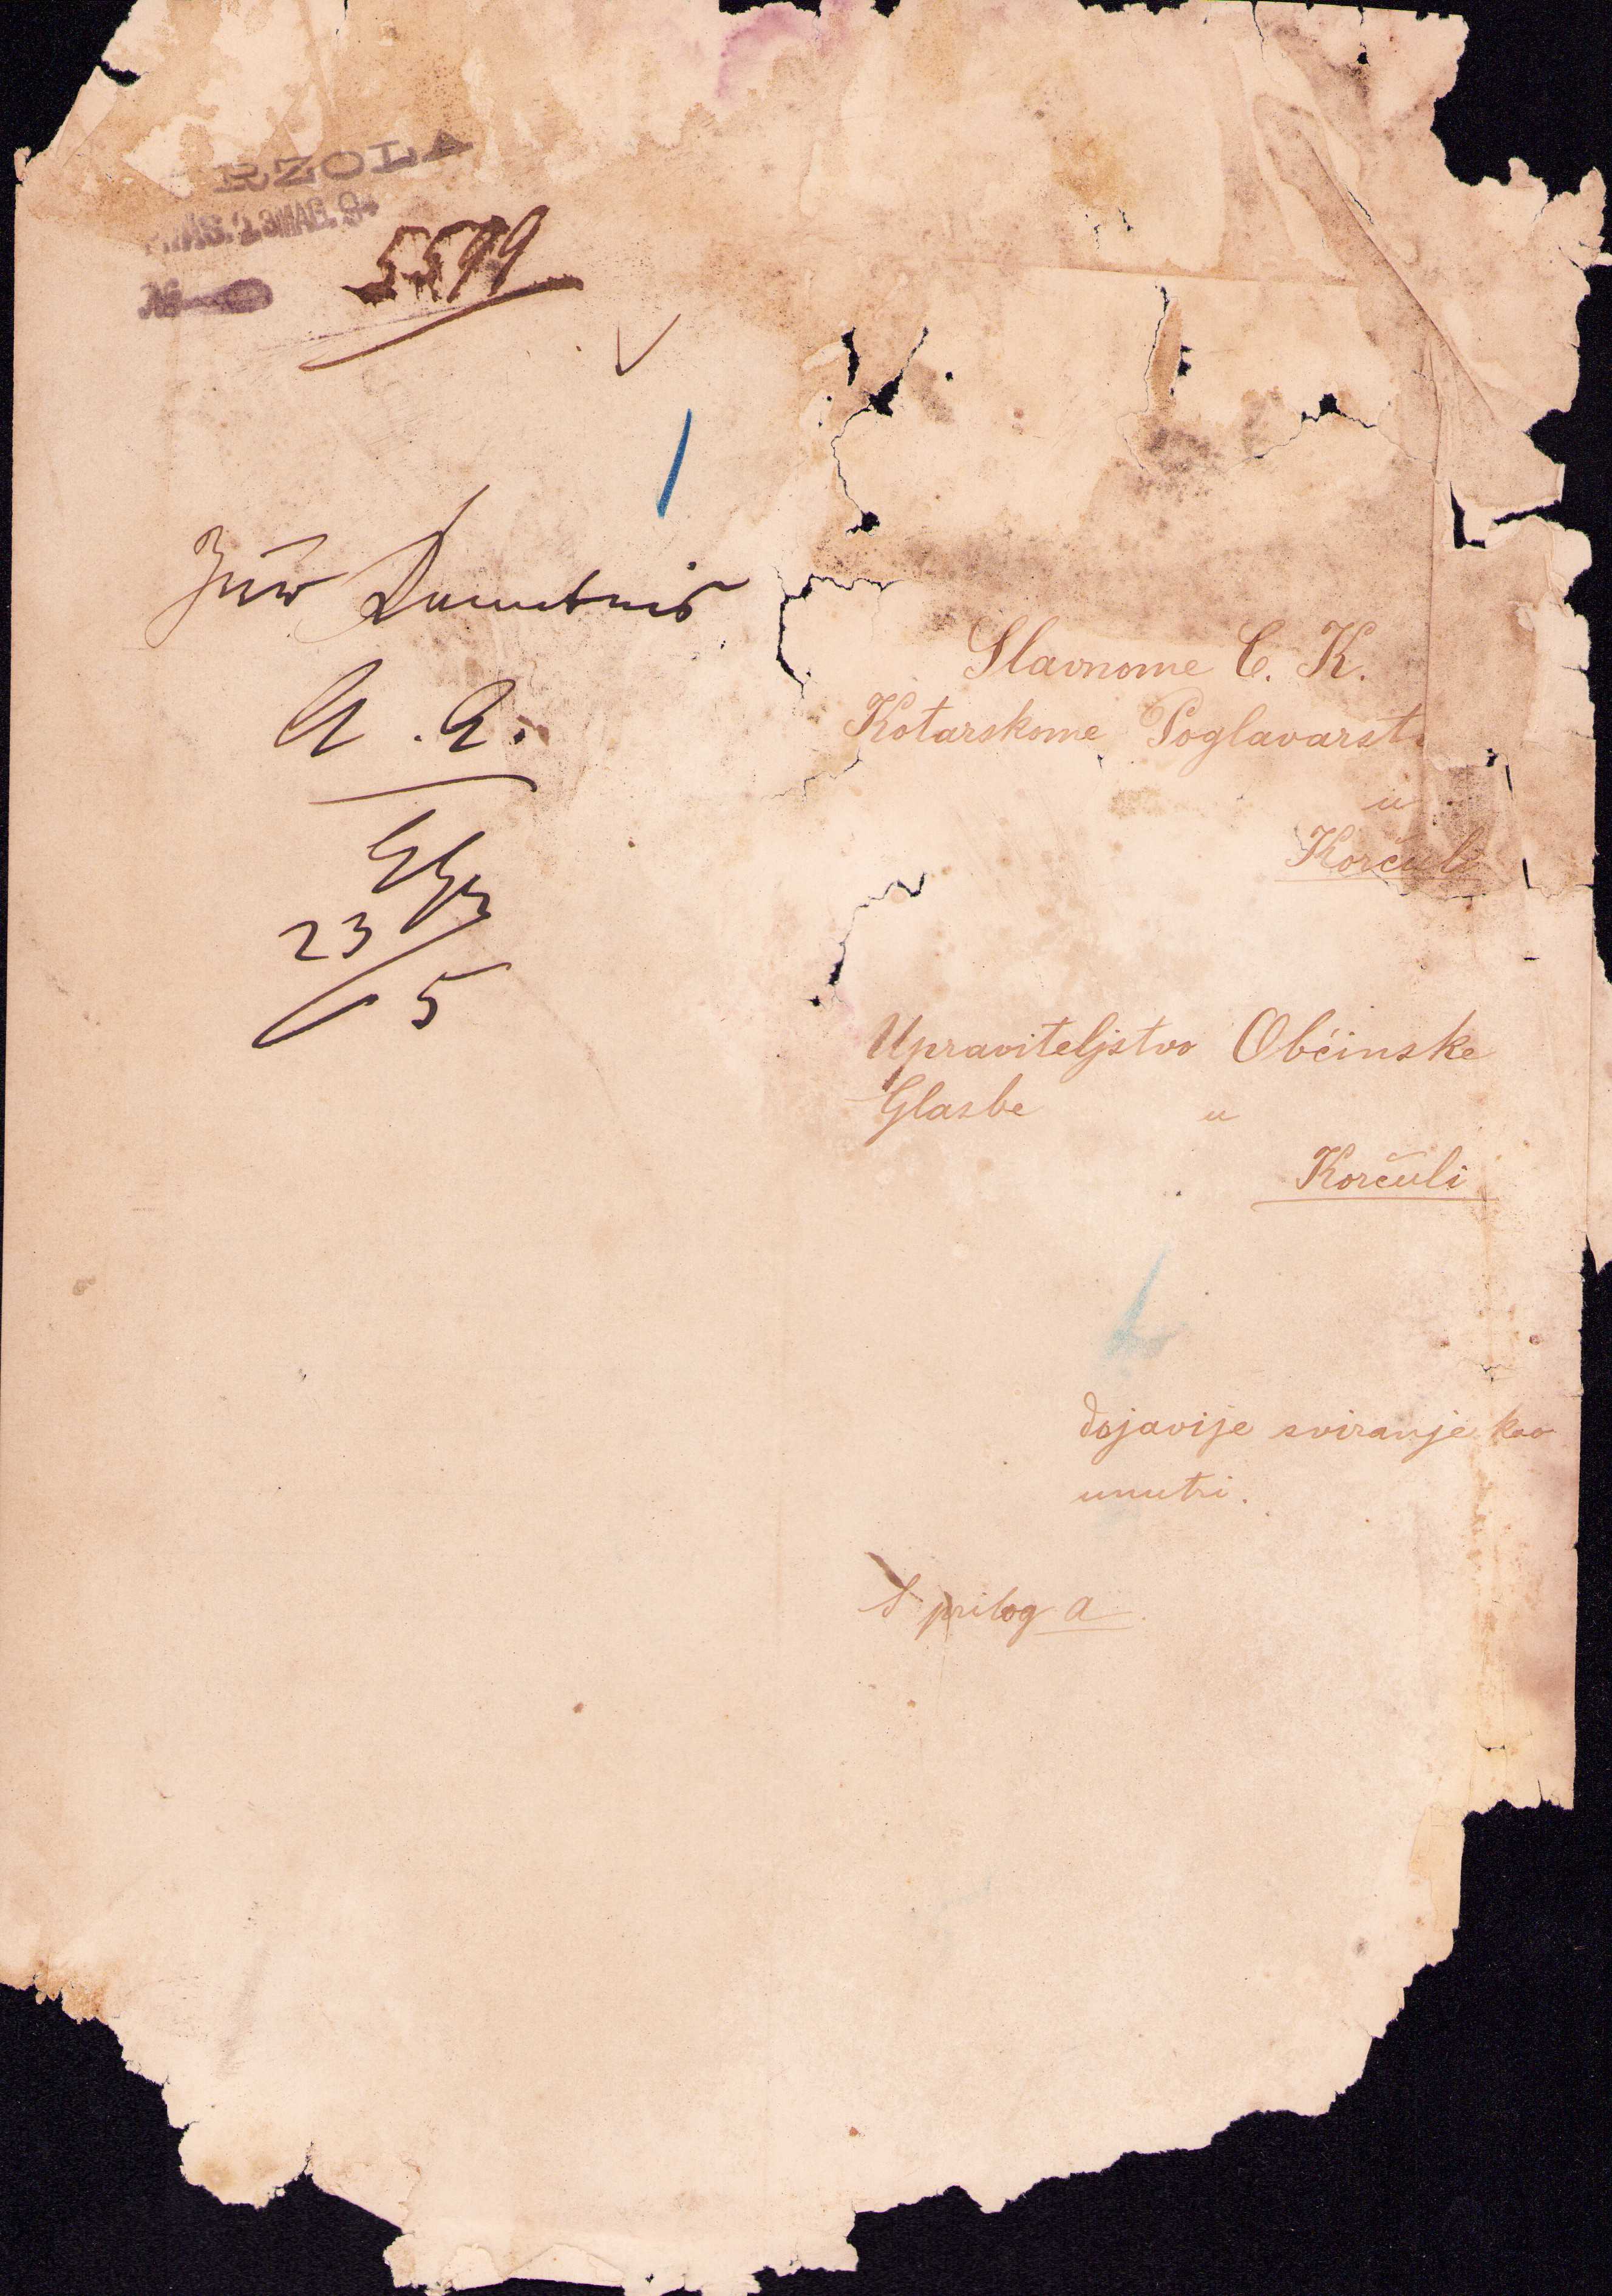 RZOLA
23 MAG. 9
№
5599
Zur Kenntnis
a. a.
23/5
Slavnome C. K.
Kotarskome Poglavarst
u
Korčuli
Upraviteljstvo Občinske
Glasbe u
Korčuli
dojavije sviranje kao
unutri.
1 prilog a